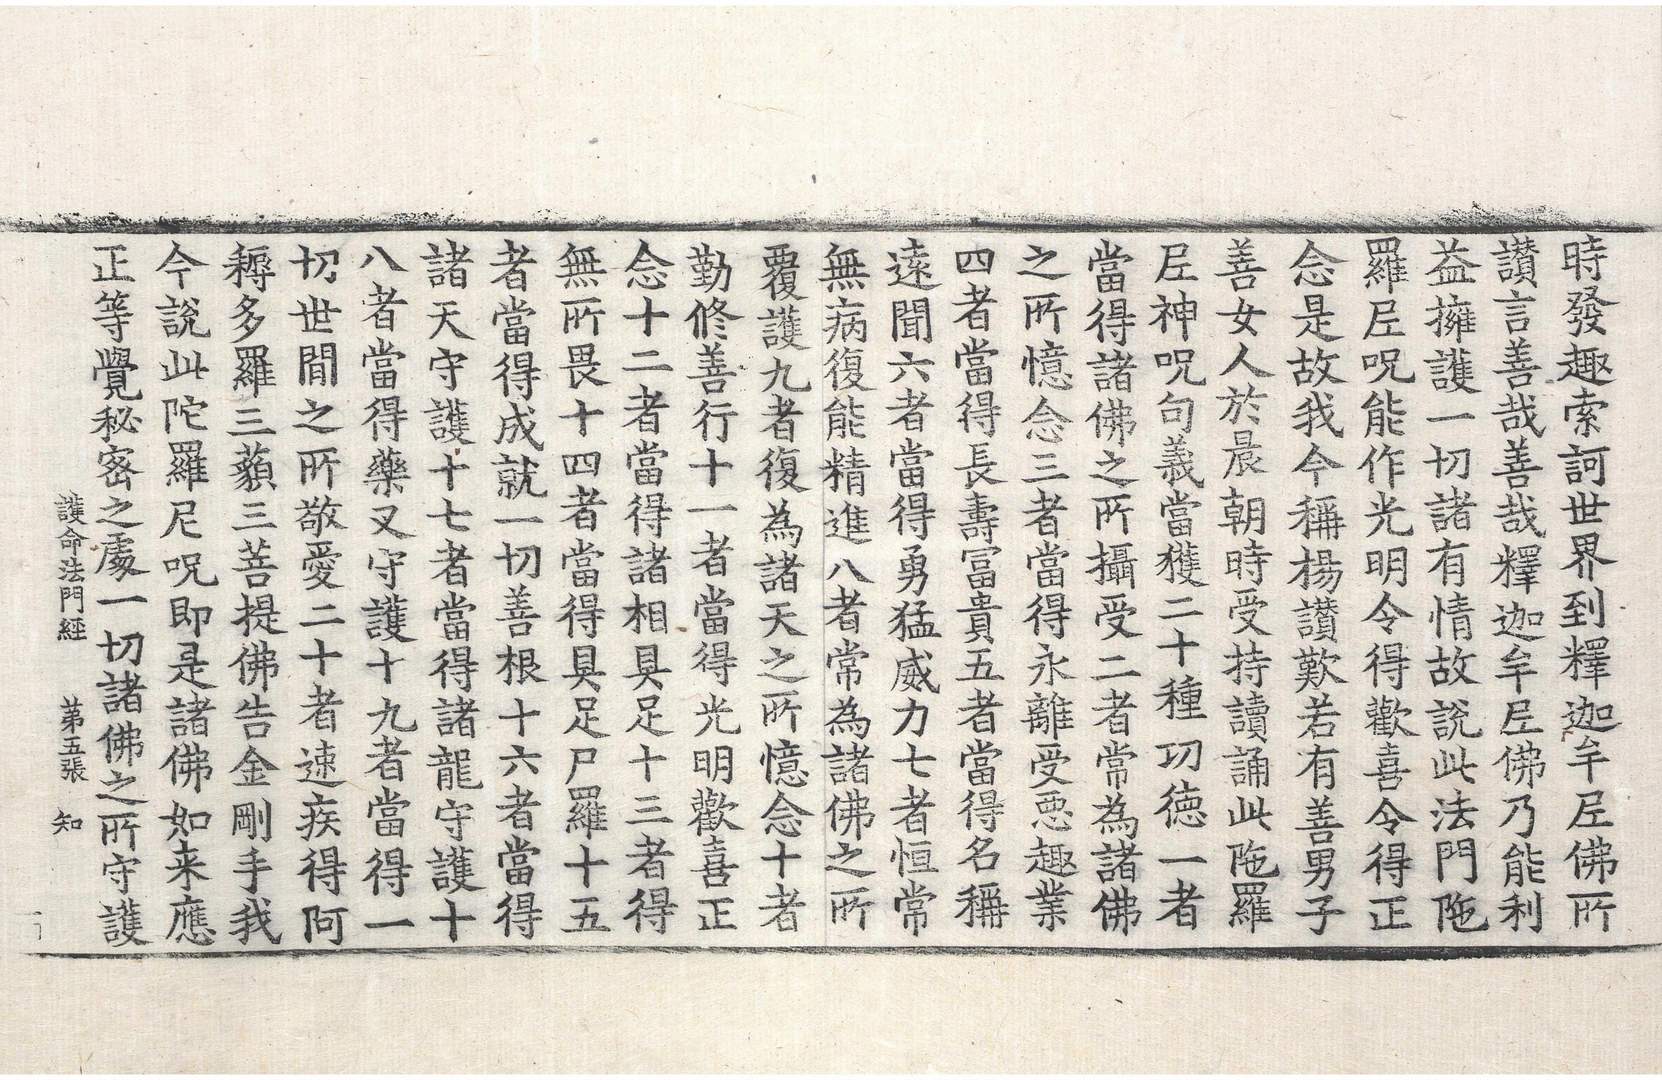 時發趣索訶世界到釋迦牟𡰱佛所
讃言善哉善哉釋迦牟𡰱佛乃能利
益擁護一切諸有情故說此法門陁
羅𡰱呪能作光明令得歡喜令得正
念是故我今稱揚讃歎若有善男子
善女人於晨朝時受持讀誦此陁羅
𡰱神呪句義當獲二十種功徳一者
當得諸佛之所攝受二者常為諸佛
之所憶念三者當得永離受惡趣業
四者當得長壽冨貴五者當得名稱
遠聞六者當得勇猛威力七者恒常
無病復能精進八者常為諸佛之所
覆護九者復為諸天之所憶念十者
勤修善行十一者當得光明歡喜正
念十二者當得諸相具足十三者得
無所畏十四者當得具足尸羅十五
者當得成就一切善根十六者當得
諸天守護十七者當得諸龍守護十
八者當得藥叉守護十九者當得一
切世間之所敬愛二十者速疾得阿
耨多羅三藐三菩提佛告金剛手我
今說此陀羅尼呪即是諸佛如来應
正等覺秘密之處一切諸佛之所守護
護命法門經 苐五張 知